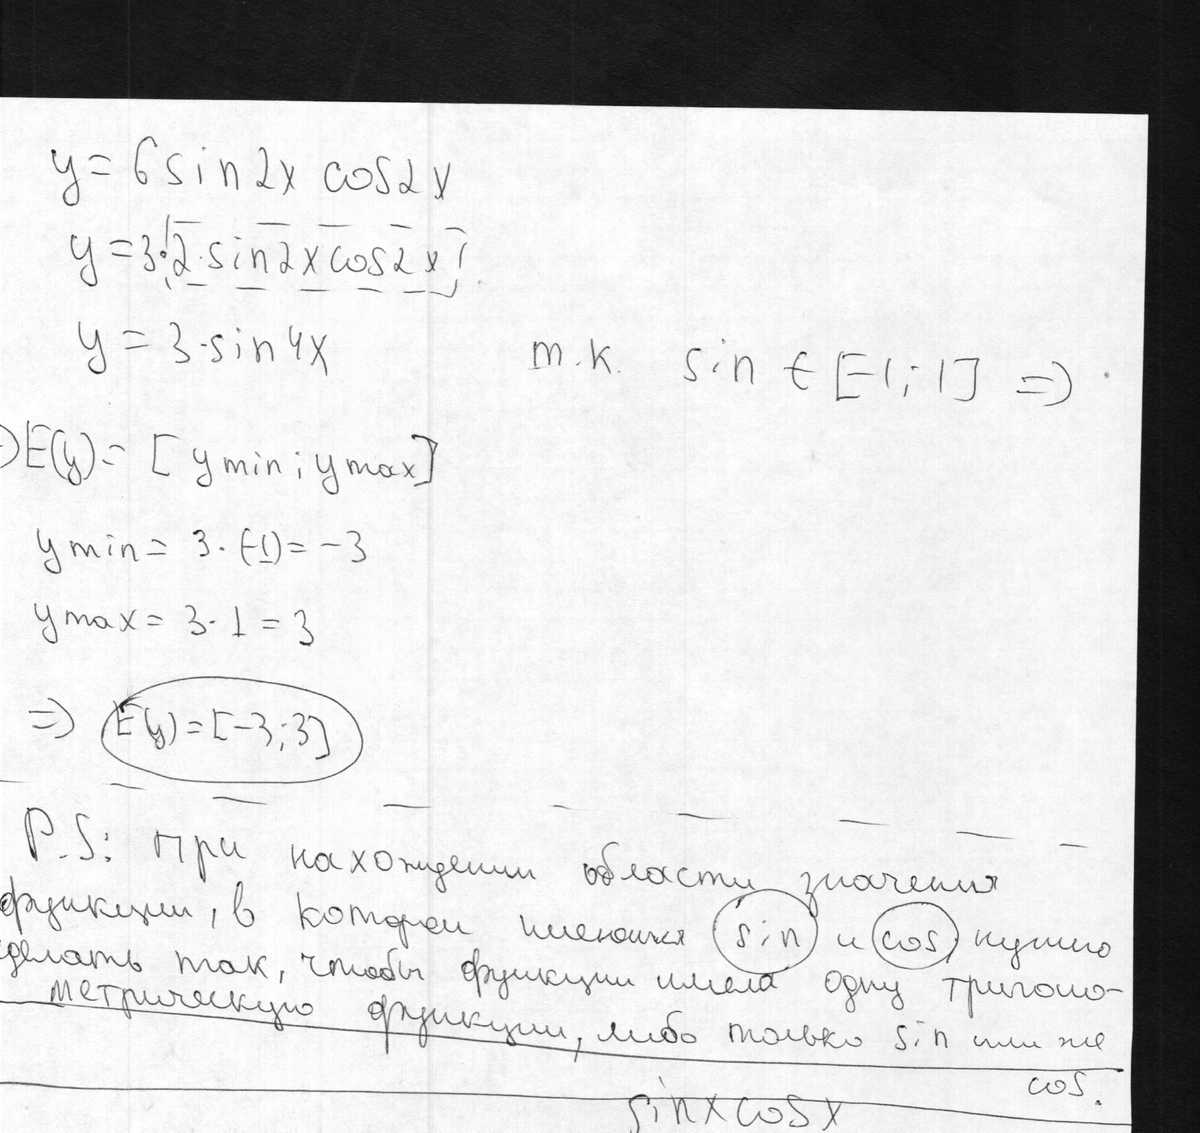 y = 6 sin 2x cos 2x
y = 3·2·sin 2x cos 2x
y = 3·sin 4x т.к. sin ∈ [-1; 1] =>
=> E(y) = [ y min ; y max ]
y min = 3·(-1) = -3
y max = 3·1 = 3
=> E(y) = [-3; 3]
P.S: При нахождении области значения
функции, в которой имеются sin и cos, нужно
сделать так, чтобы функции имела одну тригоно-
метрическую функции, либо только sin или же
cos.
sin x cos x